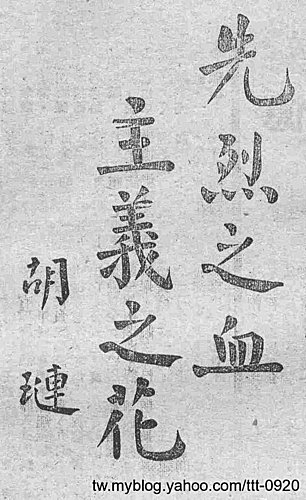 先烈之血
主義之花
胡璉
tw.myblog.yahoo.com/ttt-0920